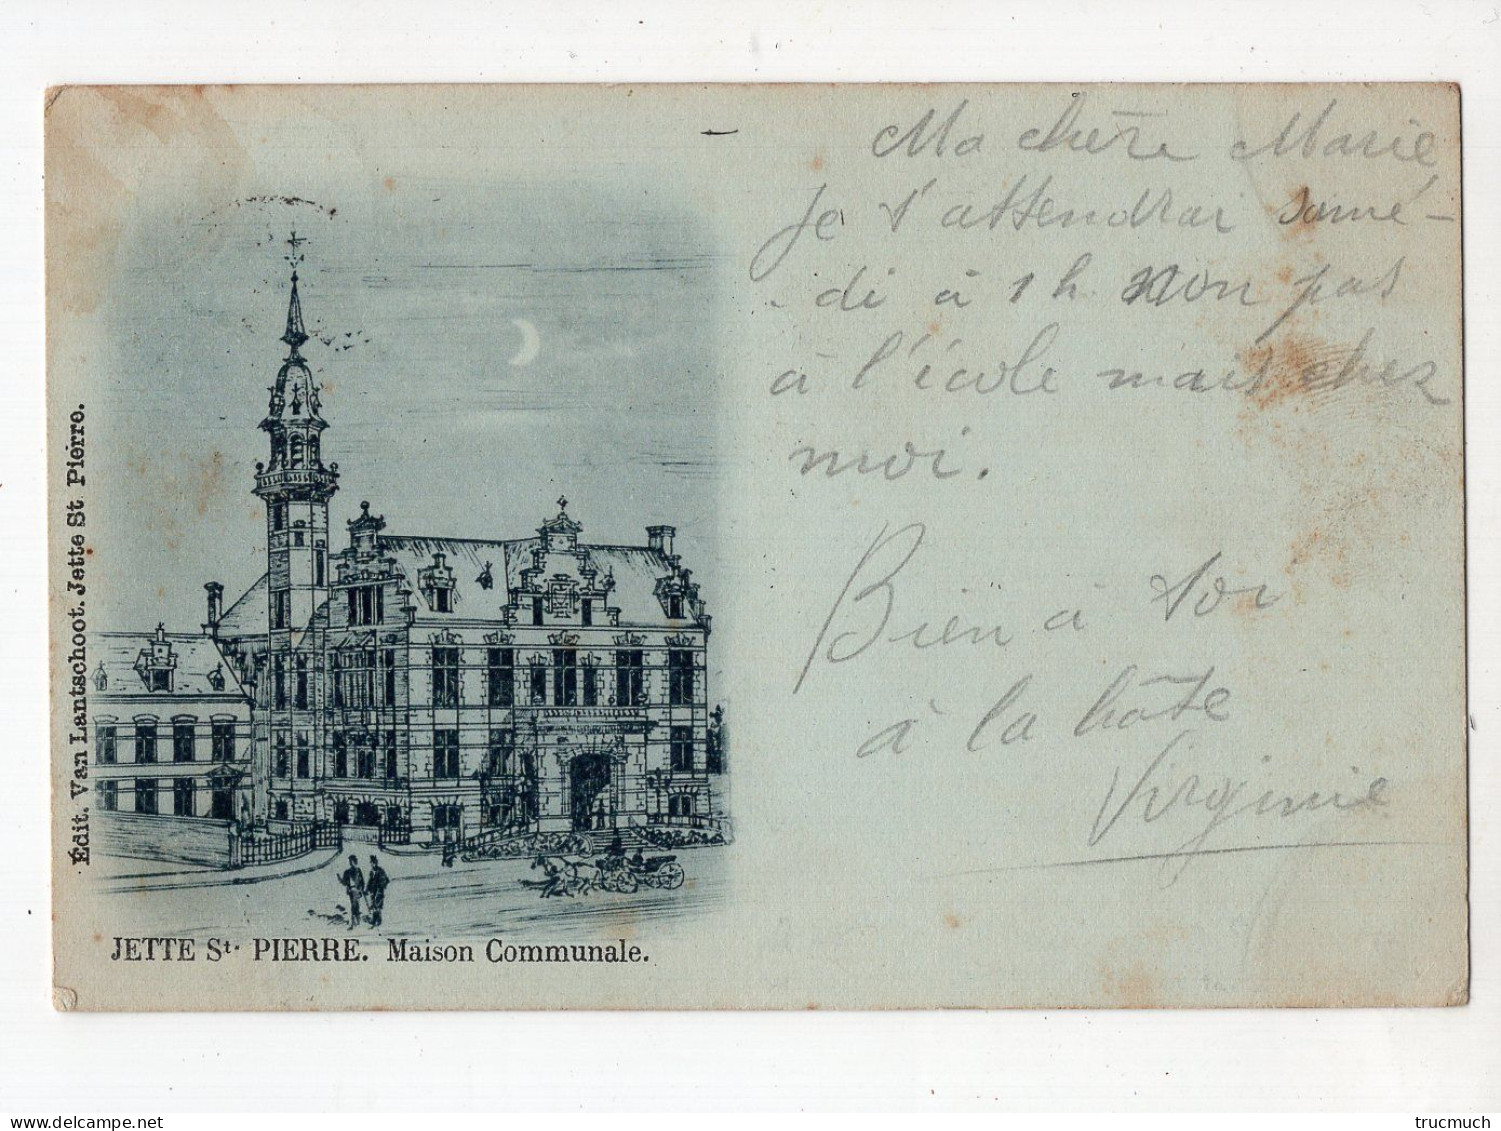 Ma chère Marie
Je t'attendrai samé-
-di à 1 h non pas
à l'école mais chez
moi.
Bien à toi
à la hâte
Virginie
Édit. Van Lantschoot. Jette St Pierre.
JETTE St. PIERRE. Maison Communale.
delcampe.net
trucmuch